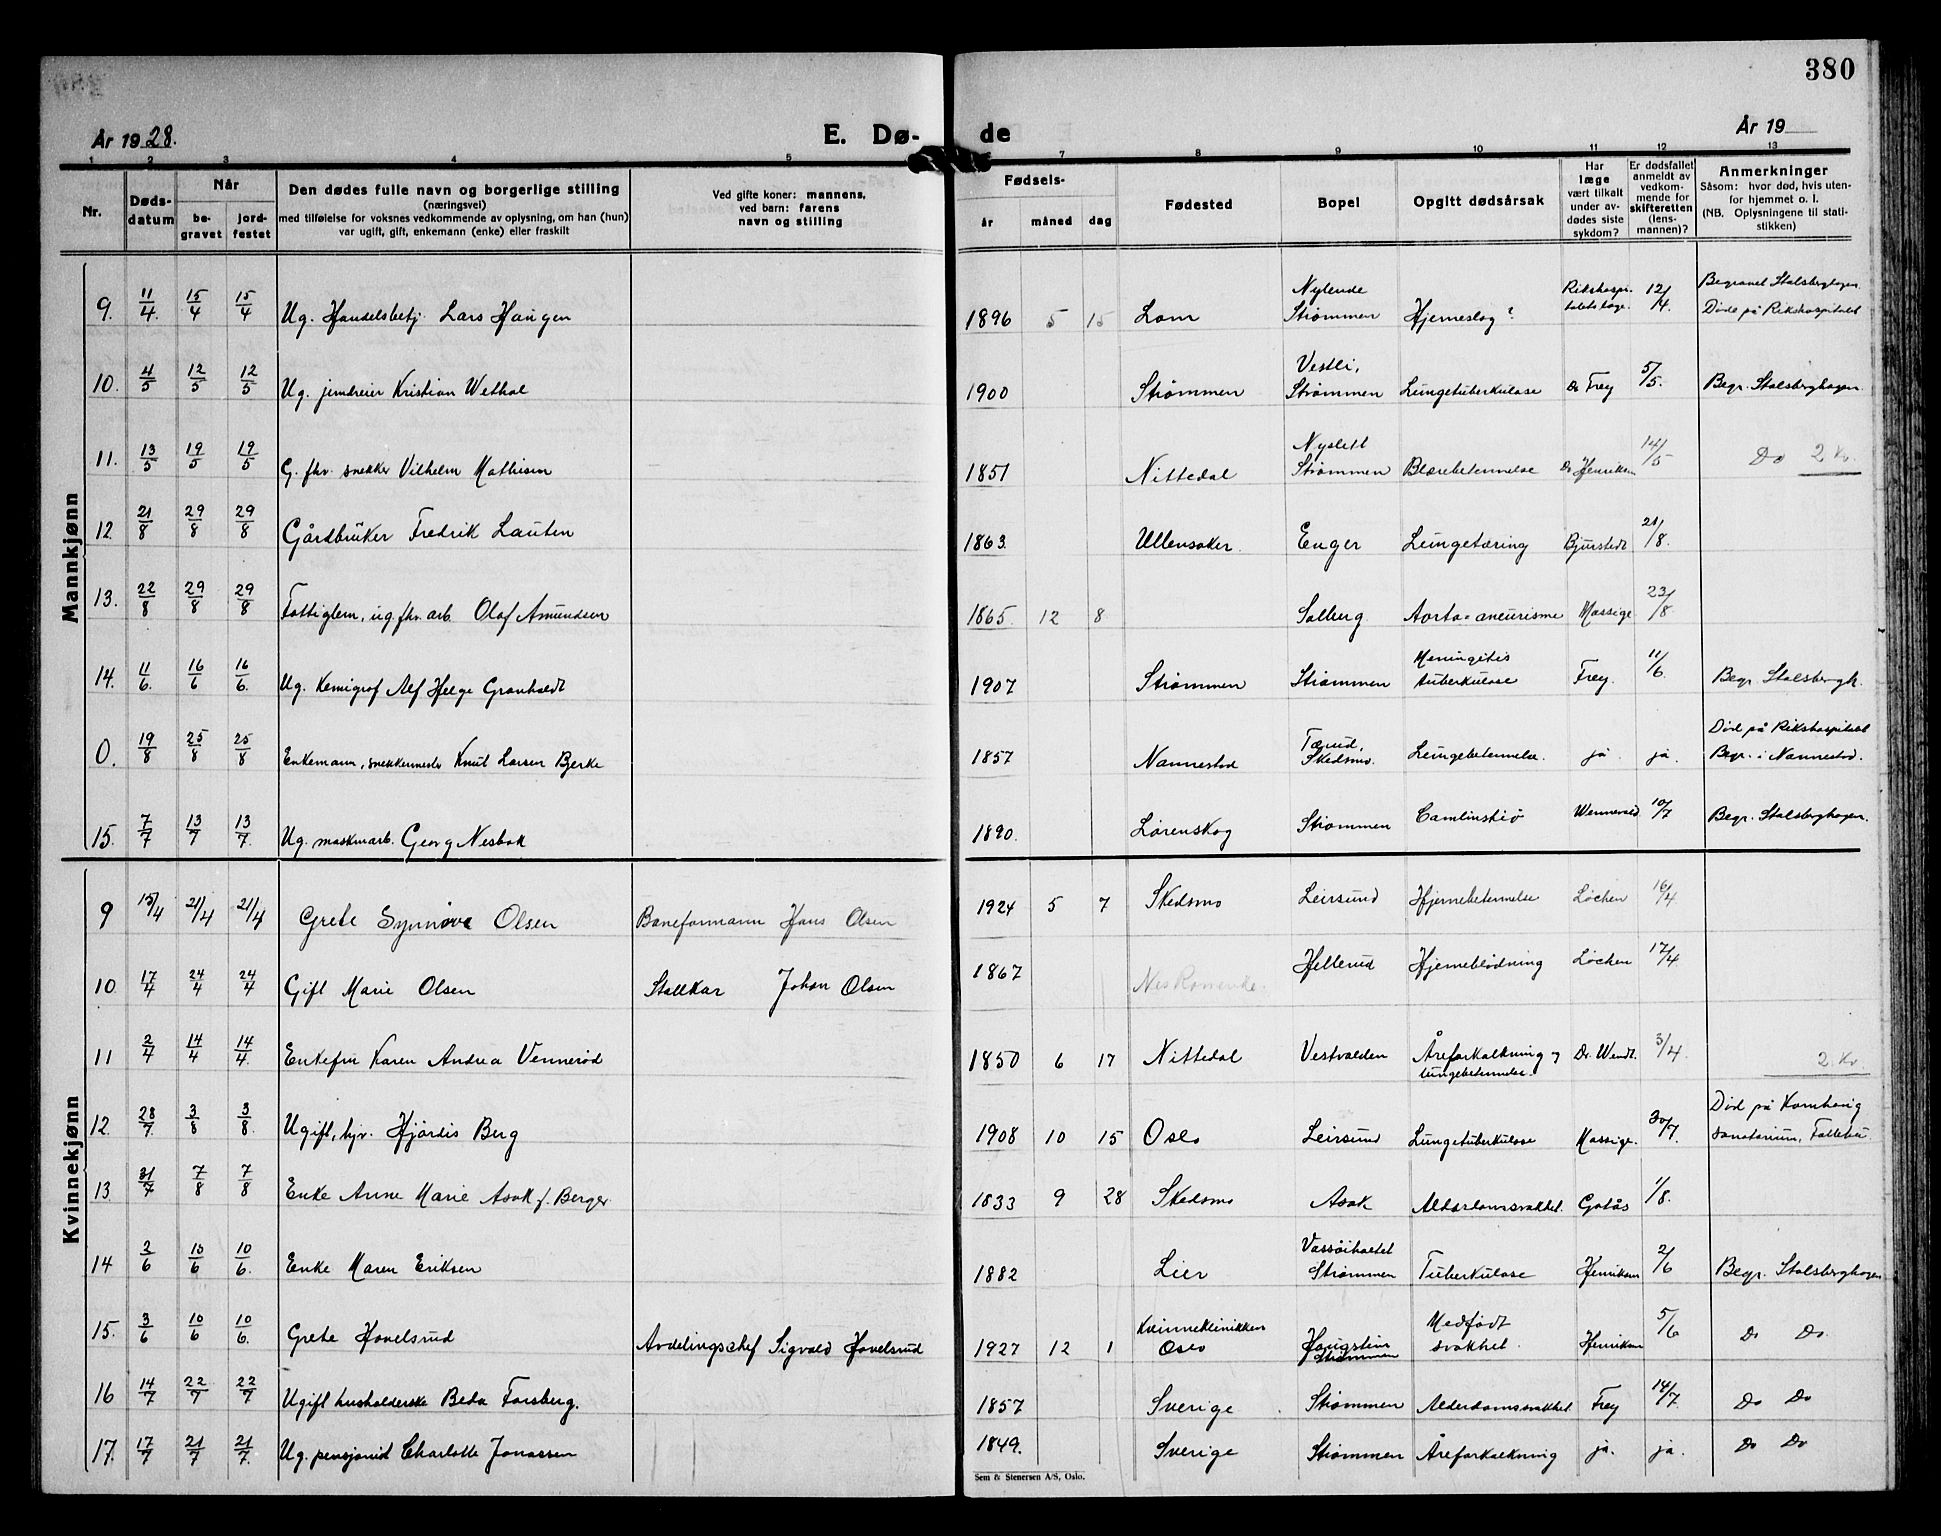 380
År 1928.
E. Dø-
de
År 19
1 2 3 4 5 7 8 9 10 11 12 13
Nr.
Døds-
datum
Når
be-
gravet
jord-
festet
Den dødes fulle navn og borgerlige stilling
(næringsvei)
med tilføielse for voksnes vedkommende av oplysning, om han (hun)
var ugift, gift, enkemann (enke) eller fraskilt
Ved gifte koner: mannens,
ved barn: farens
navn og stilling
Fødsels-
år måned dag
Fødested
Bopel
Opgitt dødsårsak
Har
læge
vært tilkalt
under av-
dødes siste
sykdom?
Er dødsfallet
anmeldt av
vedkom-
mende for
skifteretten
(lens-
mannen)?
Anmerkninger
Såsom: hvor død, hvis uten-
for hjemmet o. l.
(NB. Oplysningene til stati-
stikken)
Mannkjønn
9. 11/4. 15/4 15/4 Ug. Handelsbetj. Lars Haugen 1896 5 15 Lom Nylende Strømmen Hjerneslag? 12/4. Begravet Stalsberghagen. Døde på Rikshospitalet
10. 4/5 12/5 12/5 Ug. jerndreier Kristian Wethal 1900 Strømmen Vestli, Strømmen Lungetuberkulose Dr Frey 5/5. Begr. Stalsberghagen.
11. 13/5 19/5 19/5 G. fhv. snekker Vilhelm Mathisen 1851 Nittedal Nyslett Strømmen Blærebetennelse Dr Henriksen 14/5 Do 2 Kr.
12. 21/8 29/8 29/8 Gårdbruker Fredrik Lauten 1863. Ullensaker. Enger Lungetæring Bjurstedt 21/8.
13. 22/8 29/8 29/8 Fattiglem, ug. fhv. arb. Olaf Amundsen 1865. 12 8 Solberg Aorta-aneurisme Massige 23/8
14. 11/6. 16/6 16/6. Ug. Kemigraf Alf Helge Granholdt 1907 Strømmen Strømmen Meningitis tuberkulose Frey. 11/6. Begr. Stalsbergh.
0. 19/8 25/8 25/8 Enkemann, snekkermester Knut Larsen Bjerke 1857 Nannestad Tærud, Skedsmo. Lungebetennelse. ja ja. Død på Rikshospitalet Begr. i Nannestad.
15. 7/7 13/7 13/7. Ug. maskinarb. Georg Nesbak 1890. Lørenskog Strømmen Wennevold 10/7 Begr. Stalsberghagen.
Kvinnekjønn
9 15/4 21/4 21/4 Grete Synnøve Olsen Baneformann Hans Olsen 1924 5 7 Skedsmo Leirsund Hjernebetennelse Løchen 16/4
10 17/4 24/4 24/4 Gift Marie Olsen Stallkar Johan Olsen 1867 Nes Romerike. Hellerud Hjerneblødning Løchen 17/4
11 2/4 14/4 14/4. Enkefru Karen Andrea Vennerød 1850 6 17 Nittedal Vestvolden Åreforkalkning og lungebetennelse. Dr. Wendt. 3/4. 2. Kr.
12. 28/7. 3/8 3/8. Ugift, hjv. Hjördis Berg 1908 10 15 Oslo Leirsund Lungetuberkulose Massige. 30/7. Død på Kornhaug sanatorium, Follebu
13. 31/7 7/8 7/8 Enke Anne Marie Asak f. Berger. 1833 9 28 Skedsmo Asak Alderdomssvakhet. Gotås 1/8.
14 2/6 10/6 10/6. Enke Maren Eriksen 1882 Lier Strømmen Tuberkulose Henriksen 2/6 Begr. Stalsberghagen
15. 3/6 10/6 10/6. Grete Hovelsrud Avdelingschef Sigvald Hovelsrud 1927 12 1 Kvinneklinikken Oslo Haugstein Strømmen Medfødt svakhet. Henriksen 5/6 Do Do.
16 14/7 22/7 22/7 Ugift husholderske Beda Forsberg. 1857 Sverige Strømmen Alderdomssvakhet. Frey 14/7 Do Do
17. 17/7 21/7 21/7. Ug. pensjonist Charlotte Jonassen 1849. Sverige Strømmen Åreforkalkning ja. ja. Do Do
Sem & Stenersen A/S, Oslo.